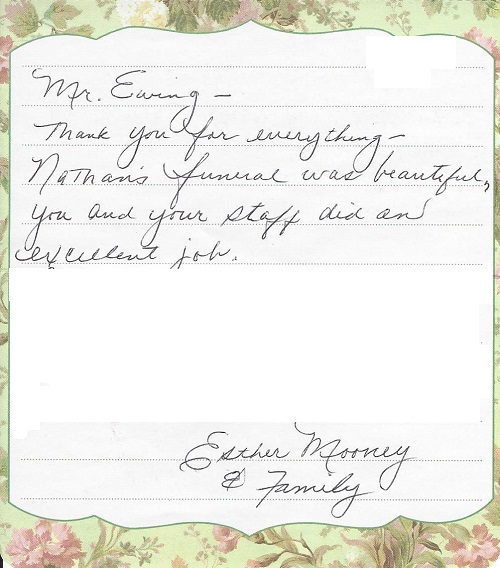 Mr. Ewing –
Thank you for everything –
Nathan's funeral was beautiful,
you and your staff did an
excellent job.
Esther Mooney
& Family